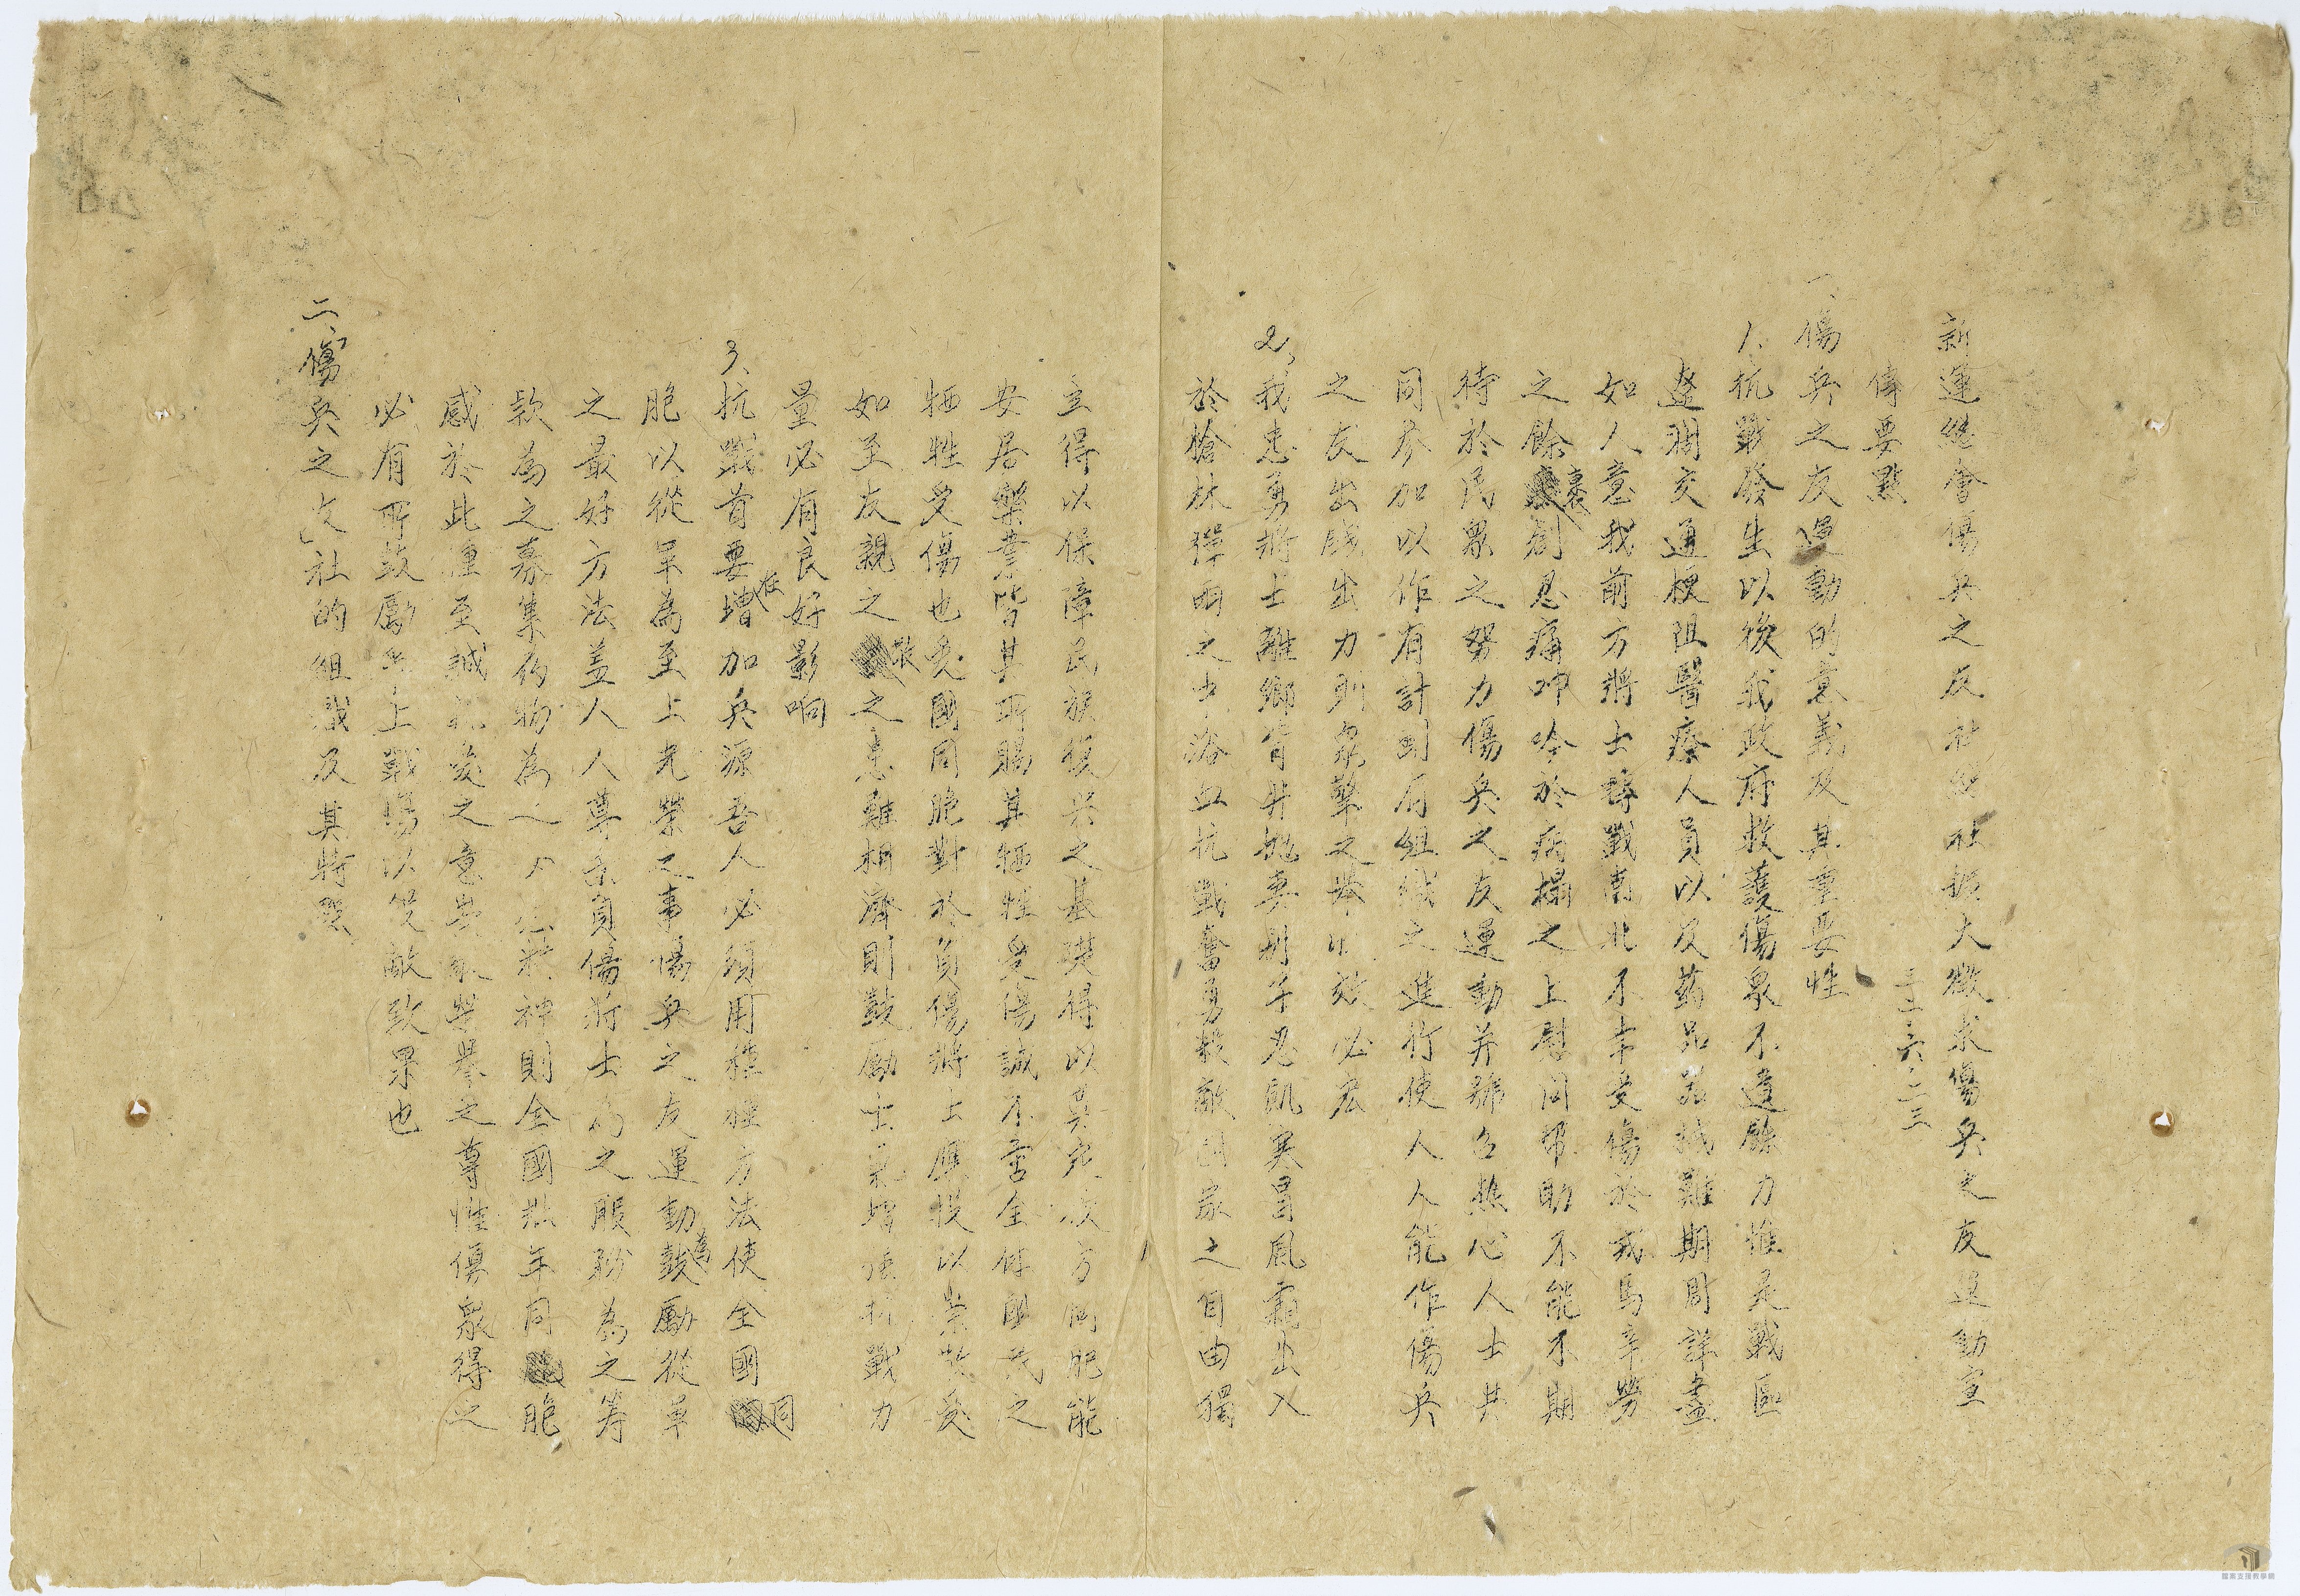 新運總會傷兵之友社總社擴大徵求傷兵之友運動宣
傳要點
三二、六、二三
一、傷兵之友運動的意義及其重要性
1.抗戰發生以後我政府救護傷衆不遺餘力惟是戰區
遼濶交通梗阻醫療人員以及葯品器械難期周詳盡
如人意我前方將士轉戰南北不幸受傷於戎馬辛勞
之餘裹創忍痛呻吟於病榻之上慰问帮助不能不期
待於民衆之努力傷兵之友運動并號召熱心人士共
同參加以作有計劃有組織之進行使人人能作傷兵
之友出錢出力則衆擎之举收效必宏
2、我忠勇將士離鄉背井拋妻別子忍飢寒冒風霜出入
於槍林彈雨之中浴血抗戰奮勇殺敵國家之自由獨
立得以保障民族復兴之基礎得以奠定後方同胞能
安居樂業皆其所賜其犧牲受傷誠不啻全体國民之
犧牲受傷也凡國同胞對於負傷將士應投以崇敬爱
如至友親之之患難相濟則鼓勵士氣增強抗戰力
量必有良好影响
3、抗戰首要在增加兵源吾人必須用種種方法使全國同
胞以從軍為至上光榮之事傷兵之友運動為鼓勵從軍
之最好方法盖人人尊崇負傷將士為之服務為之籌
款為之募集药物為之神則全國壯年同胞
感於此種至誠礼爱之意與榮譽之尊惟傷衆得之
必有所鼓勵上戰場以殺敵致果也
二、「傷兵之友」社的組織及其特點